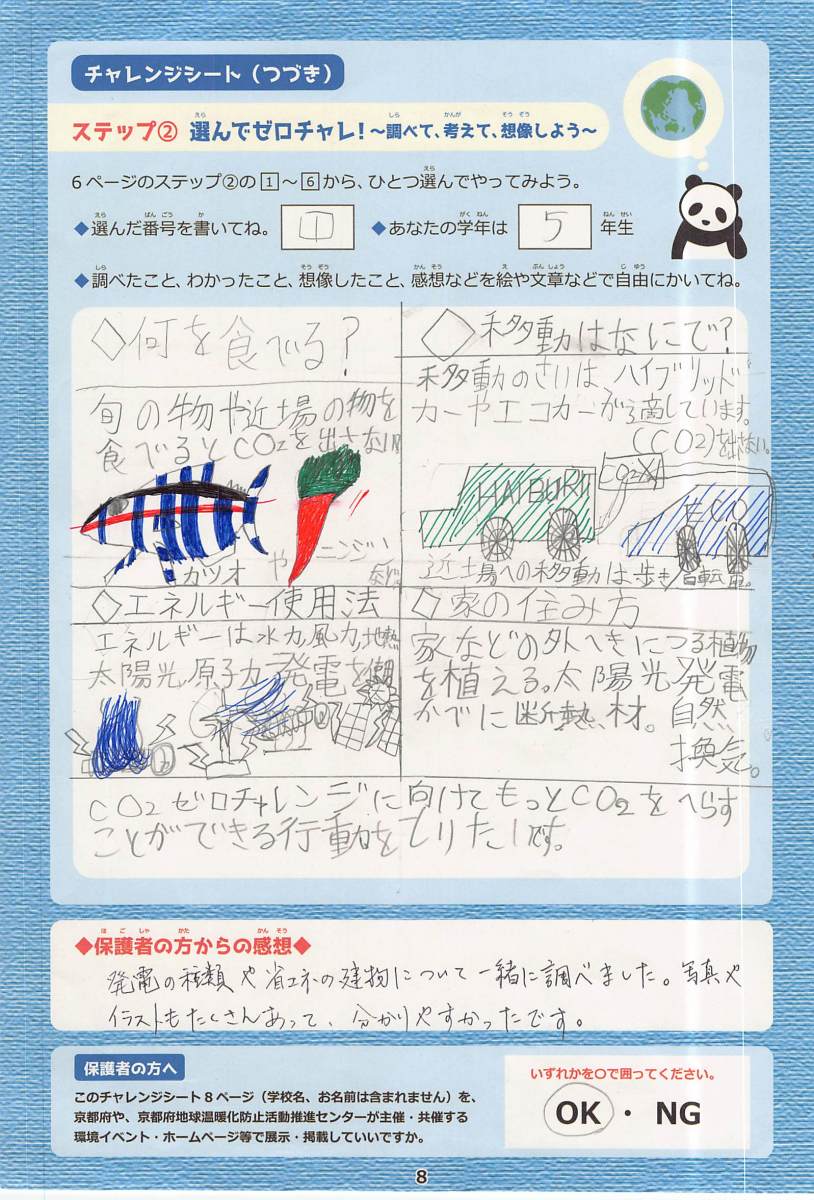 チャレンジシート（つづき）
ステップ② 選んでゼロチャレ！～調べて、考えて、想像しよう～
6ページのステップ②の1～6から、ひとつ選んでやってみよう。
◆選んだ番号を書いてね。 1 ◆あなたの学年は 5 年生
◆調べたこと、わかったこと、想像したこと、感想などを絵や文章などで自由にかいてね。
◇何を食べる？
旬の物や近場の物を
食べるとCO2を出さない
カツオ や ニンジン
など
◇移動はなにで？
移動のさいは、ハイブリッド
カーやエコカーが適しています。
(CO2)を出さない。
HAIBURI
CO2
ECO
近場への移動は歩き 自転車。
◇エネルギー使用法
エネルギーは水力,風力,地熱
太陽光,原子力,発電を
◇家の住み方
家などの外へきにつる植物
を植える。太陽光発電
かべに断熱材。自然
換気。
CO2ゼロチャレンジに向けてもっとCO2をへらす
ことができる行動をとりたいです。
◆保護者の方からの感想◆
発電の種類や省エネの建物について一緒に調べました。写真や
イラストもたくさんあって、分かりやすかったです。
保護者の方へ
このチャレンジシート8ページ（学校名、お名前は含まれません）を、
京都府や、京都府地球温暖化防止活動推進センターが主催・共催する
環境イベント・ホームページ等で展示・掲載していいですか。
いずれかを○で囲ってください。
OK ・ NG
8